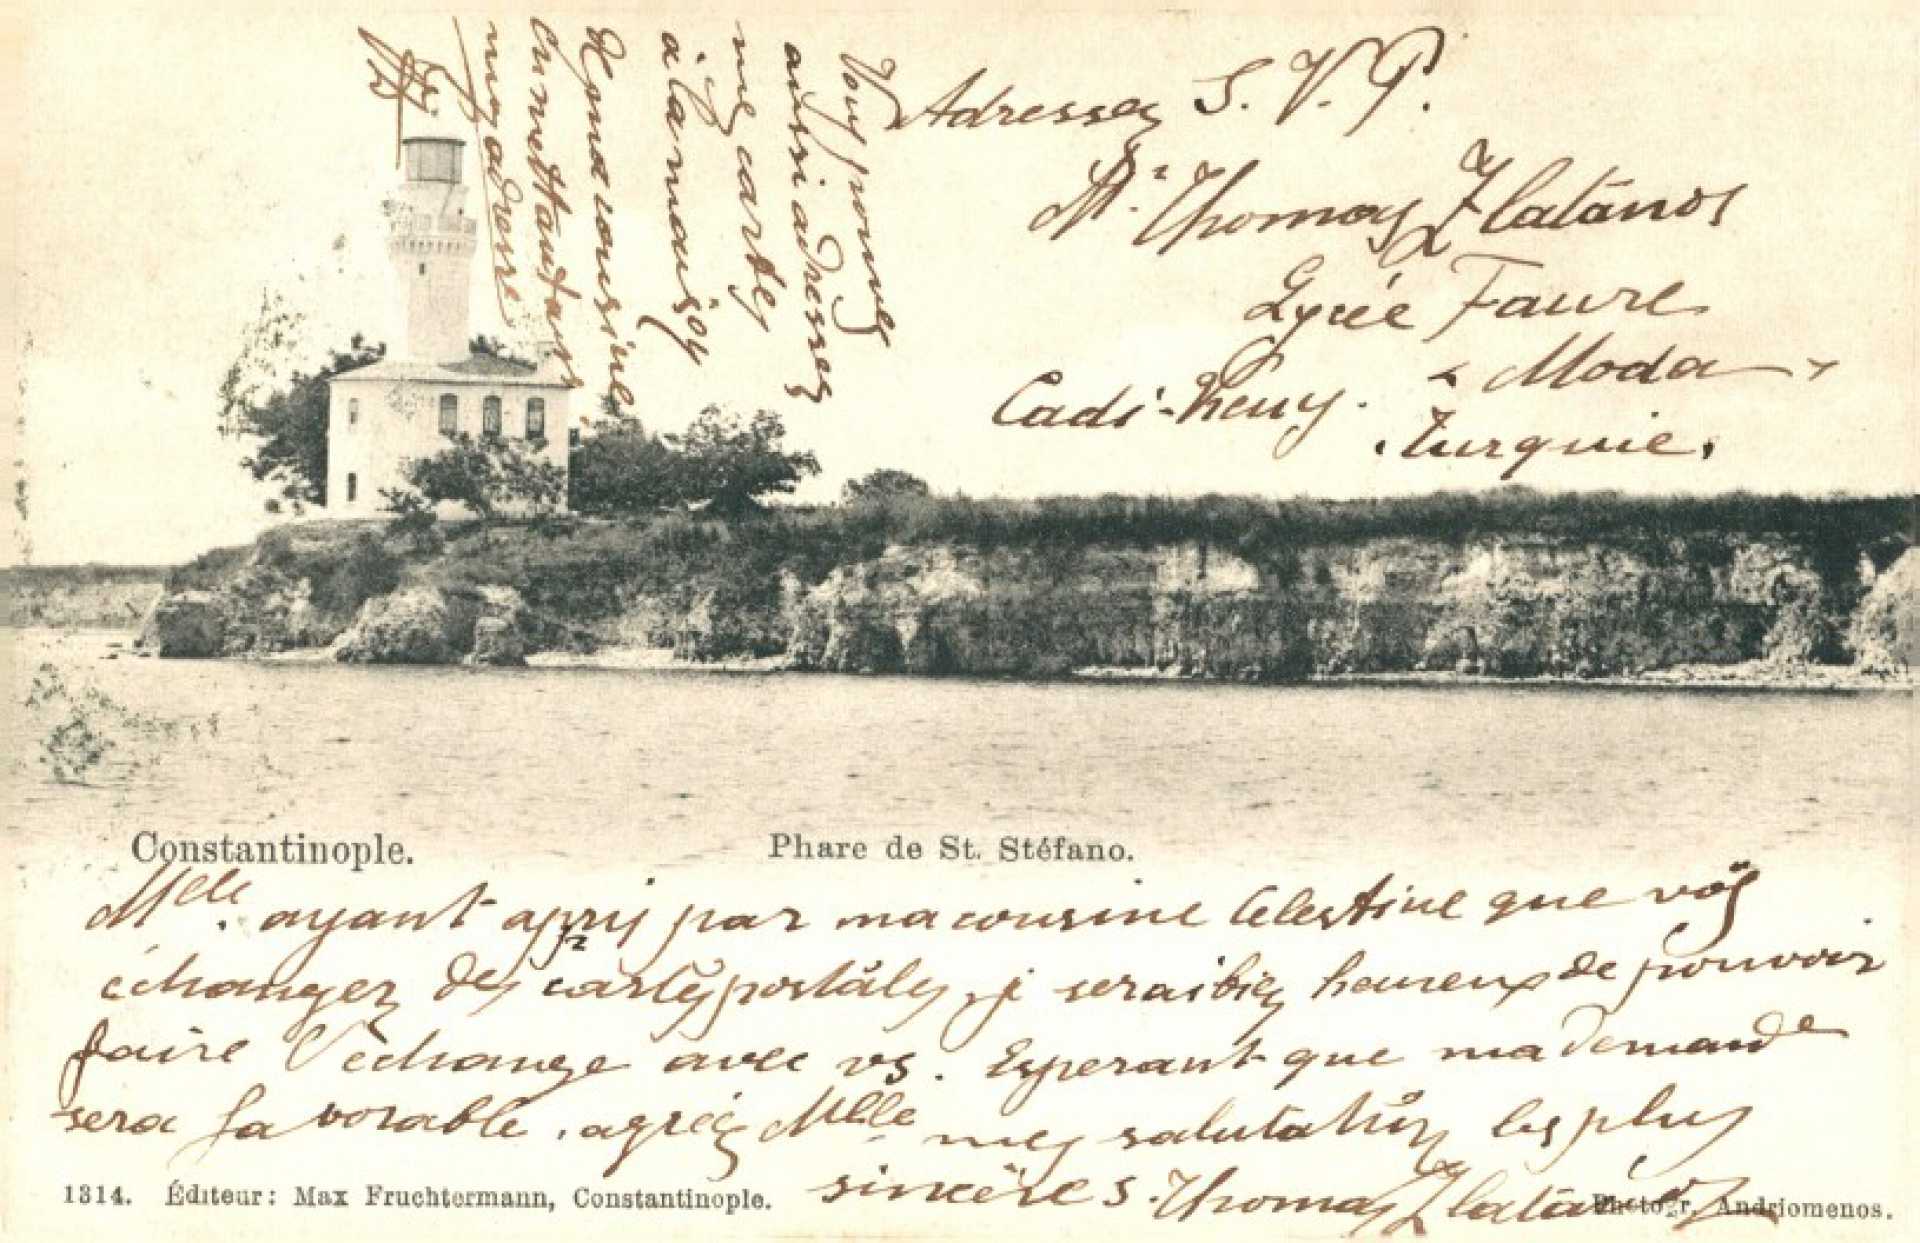 Adressez S. V. P.
Mr. Thomas Zlatanos
Lycée Faure
« Moda »
Cadi-Keuy.
Turquie.
Vous pouvez
aussi adresser
mes cartes
à la maison
de ma cousine
en mettant
mon adresse
Constantinople.
Phare de St. Stéfano.
Mlle. ayant appris par ma cousine Celestine que vos
échangez des cartes postales, j serai bien heureux de pouvoir
faire l'échange avec vs. Esperant que ma demande
sera favorable. agréez Mlle mes salutations les plus
sincères. Thomas Zlatanos
1314. Éditeur: Max Fruchtermann, Constantinople.
Photogr. Andriomenos.